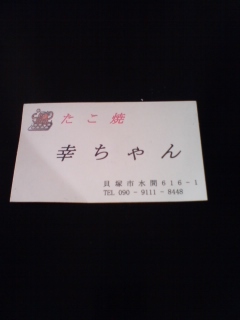 たこ焼
幸ちゃん
貝塚市水間616-1
TEL 090-9111-8448